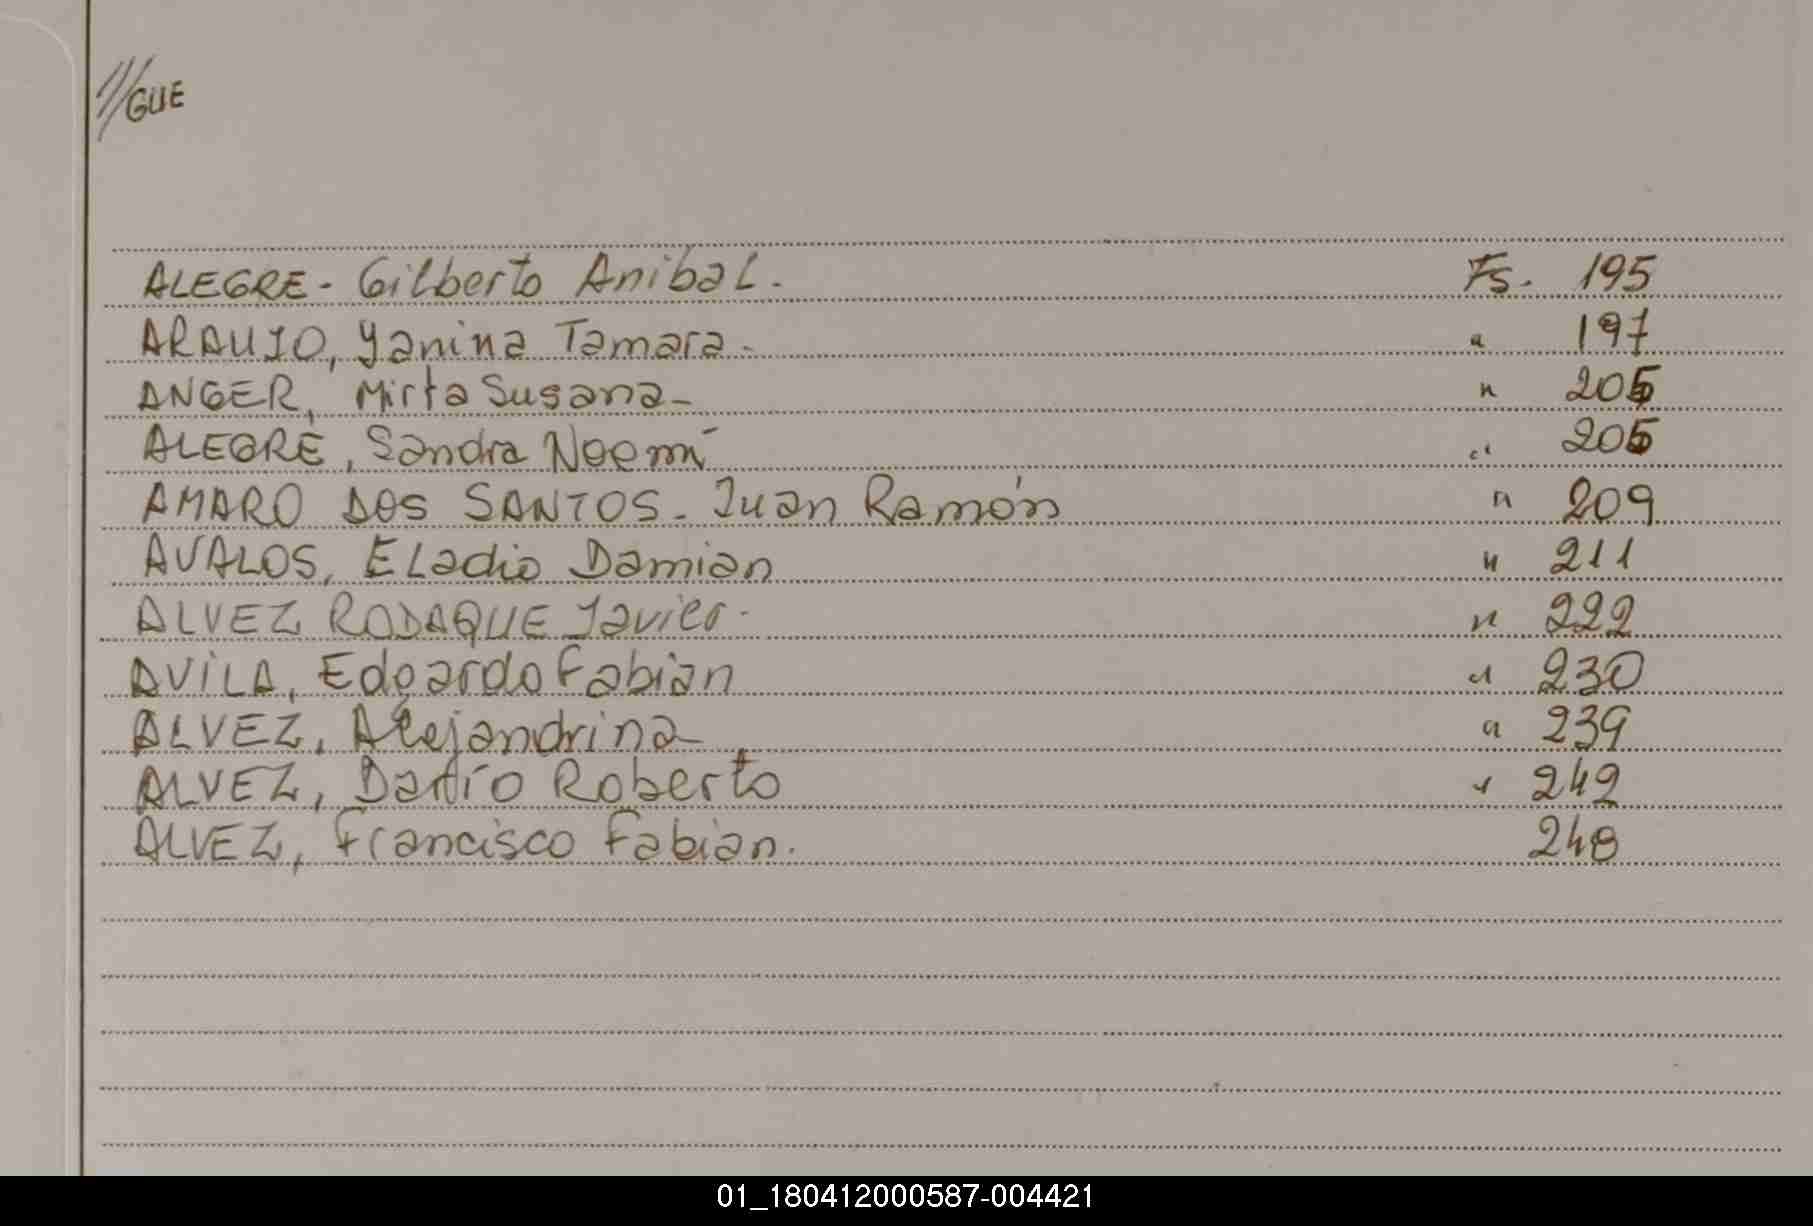 ///GUE
ALEGRE - Gilberto Anibal. Fs. 195
ARAUJO, Yanina Tamara - " 197
ANGER, Mirta Susana - " 205
ALEGRE, Sandra Noemí " 205
AMARO DOS SANTOS - Juan Ramón " 209
AVALOS, Eladio Damian " 211
ALVEZ RODAQUE Javier - " 222
AVILA, Edgardo Fabian " 230
ALVEZ, Alejandrina " 239
ALVEZ, Darío Roberto " 242
ALVEZ, Francisco Fabian. 248
01_180412000587-004421